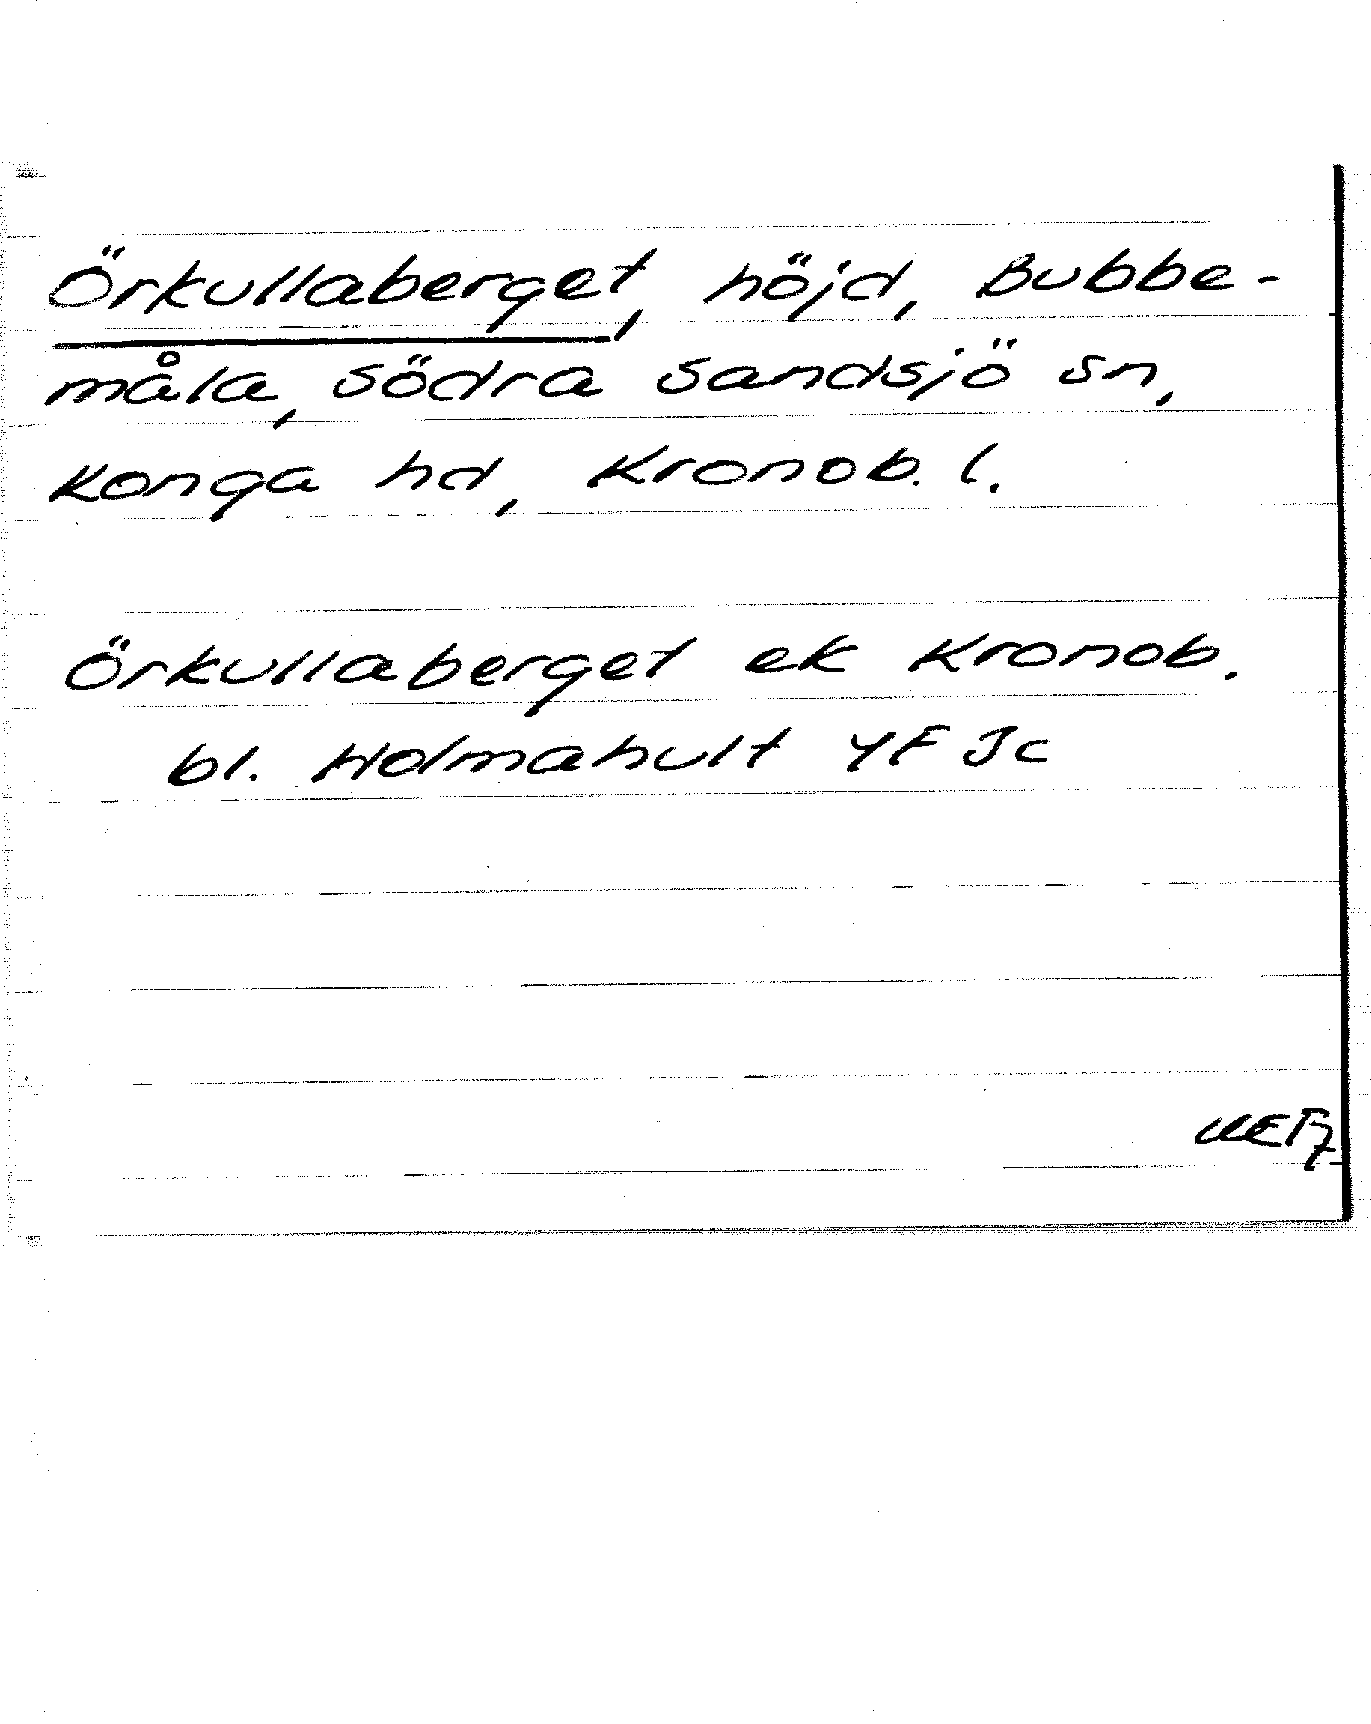 Örkullaberget, höjd, Bubbe-
måla, södra Sandsjö sn,
Konga hd, Kronob. l.
Örkullaberget ek Kronob.
bl. Holmahult YF Jc